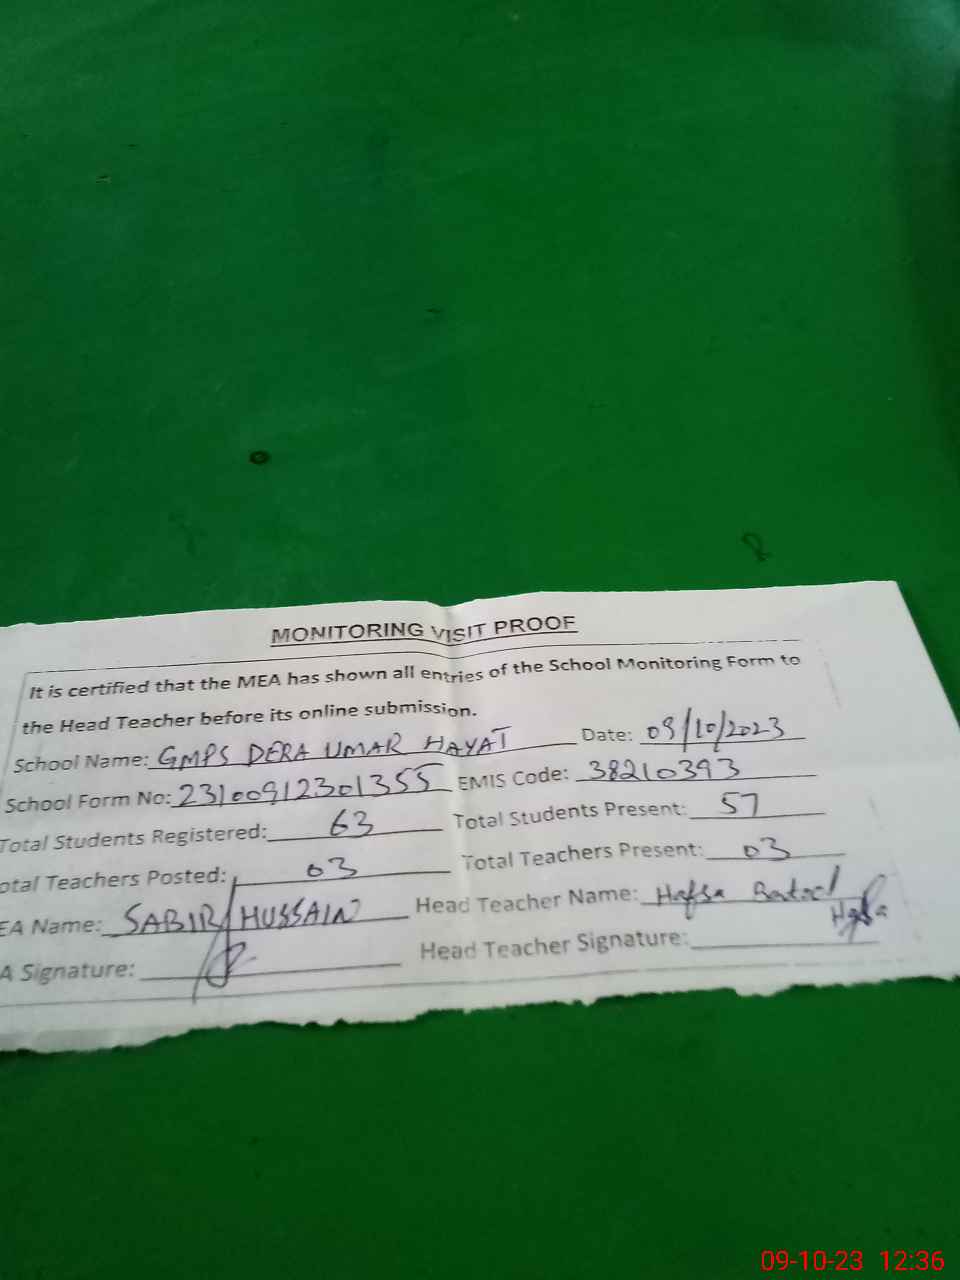 MONITORING VISIT PROOF
It is certified that the MEA has shown all entries of the School Monitoring Form to
the Head Teacher before its online submission.
School Name: GMPS DERA UMAR HAYAT Date: 09/10/2023
School Form No: 23100912301355 EMIS Code: 38210393
Total Students Registered: 63 Total Students Present: 57
otal Teachers Posted: 03 Total Teachers Present: 03
EA Name: SABIR HUSSAIN Head Teacher Name: Hafsa Batool
A Signature: Head Teacher Signature: Hafsa
09-10-23 12:36